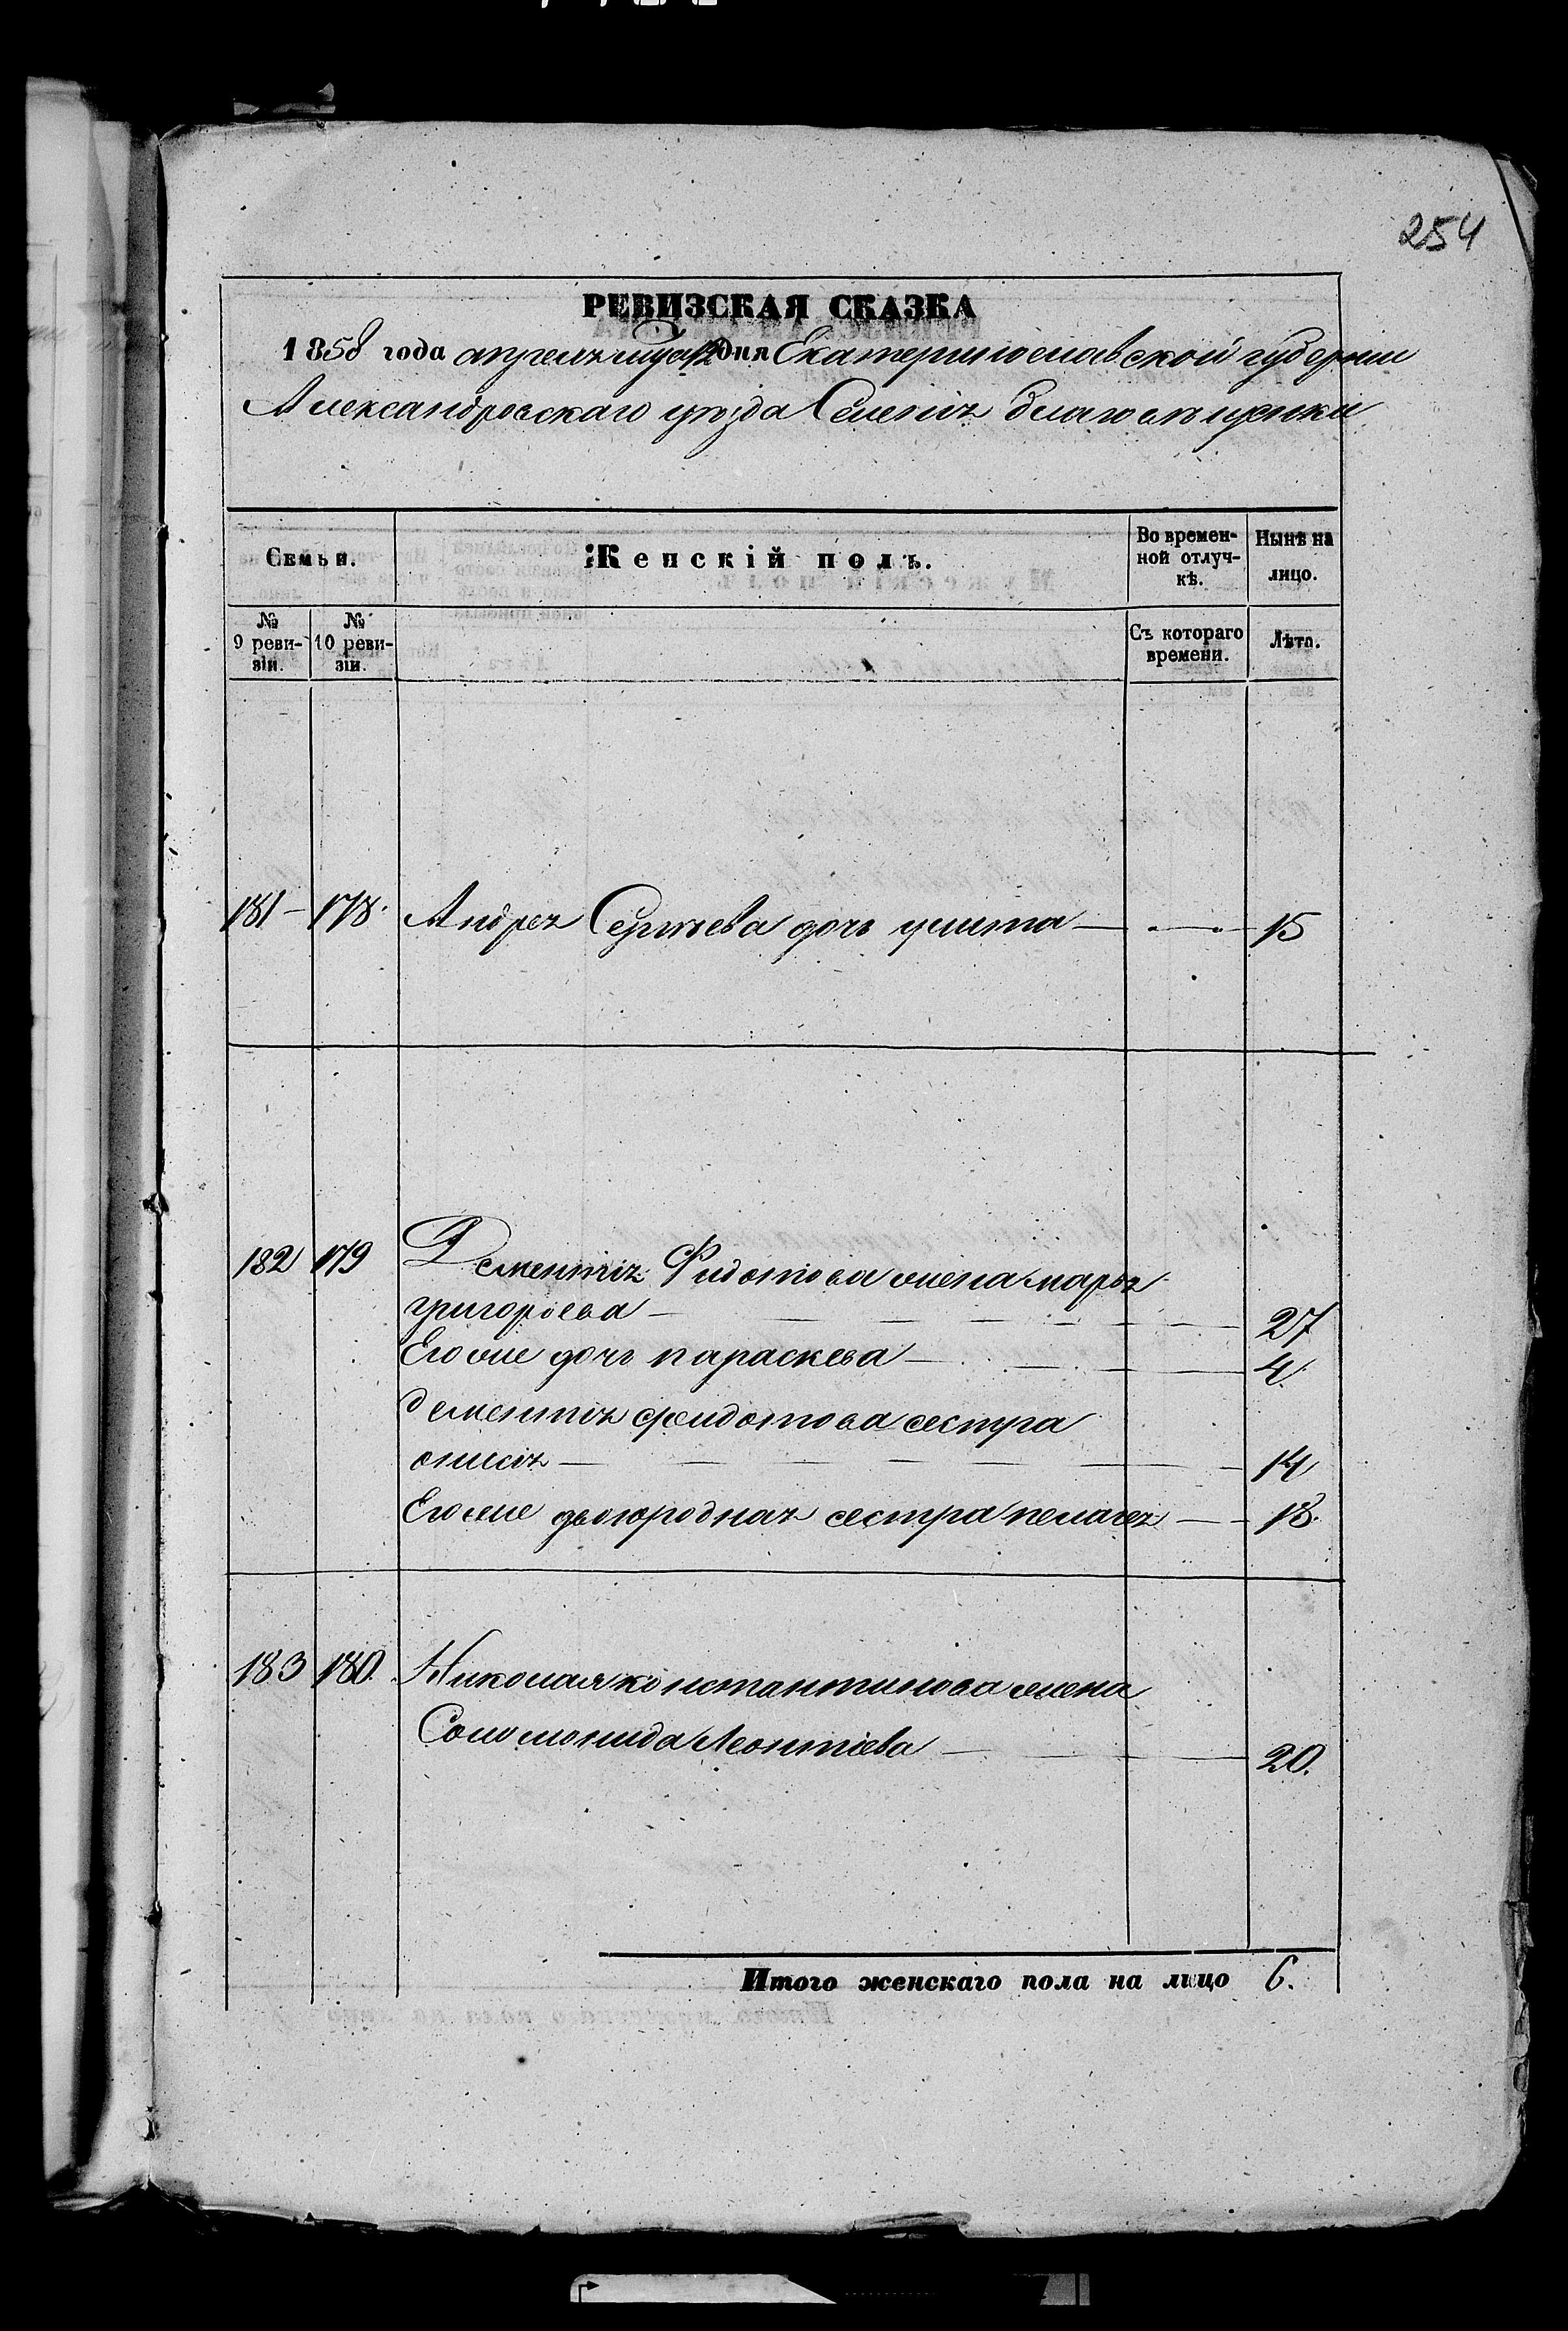 254
РЕВИЗСКАЯ СКАЗКА
1858 года апреля дня Екатеринославской губернии
Александровскаго уѣзда Селенія Благовѣщенки
Семьи.
Женскій полъ.
Во времен-
ной отлуч-
кѣ.
Нынѣ на
лицо.
№
9 реви-
зіи.
№
10 реви-
зіи.
Съ котораго
времени.
Лѣта.
181 - 178. Андрея Сергѣева дочь улита 15
182 179 Дементія Фидотова жена марья
григорьева 27
Его же дочь параскева 4.
дементія феидотова сестра
онисія 14
Его же двоюродная сестра пелагея 18.
183 180. Николая константинова жена
Соломонида Леонтіева 20.
Итого женскаго пола на лицо 6.